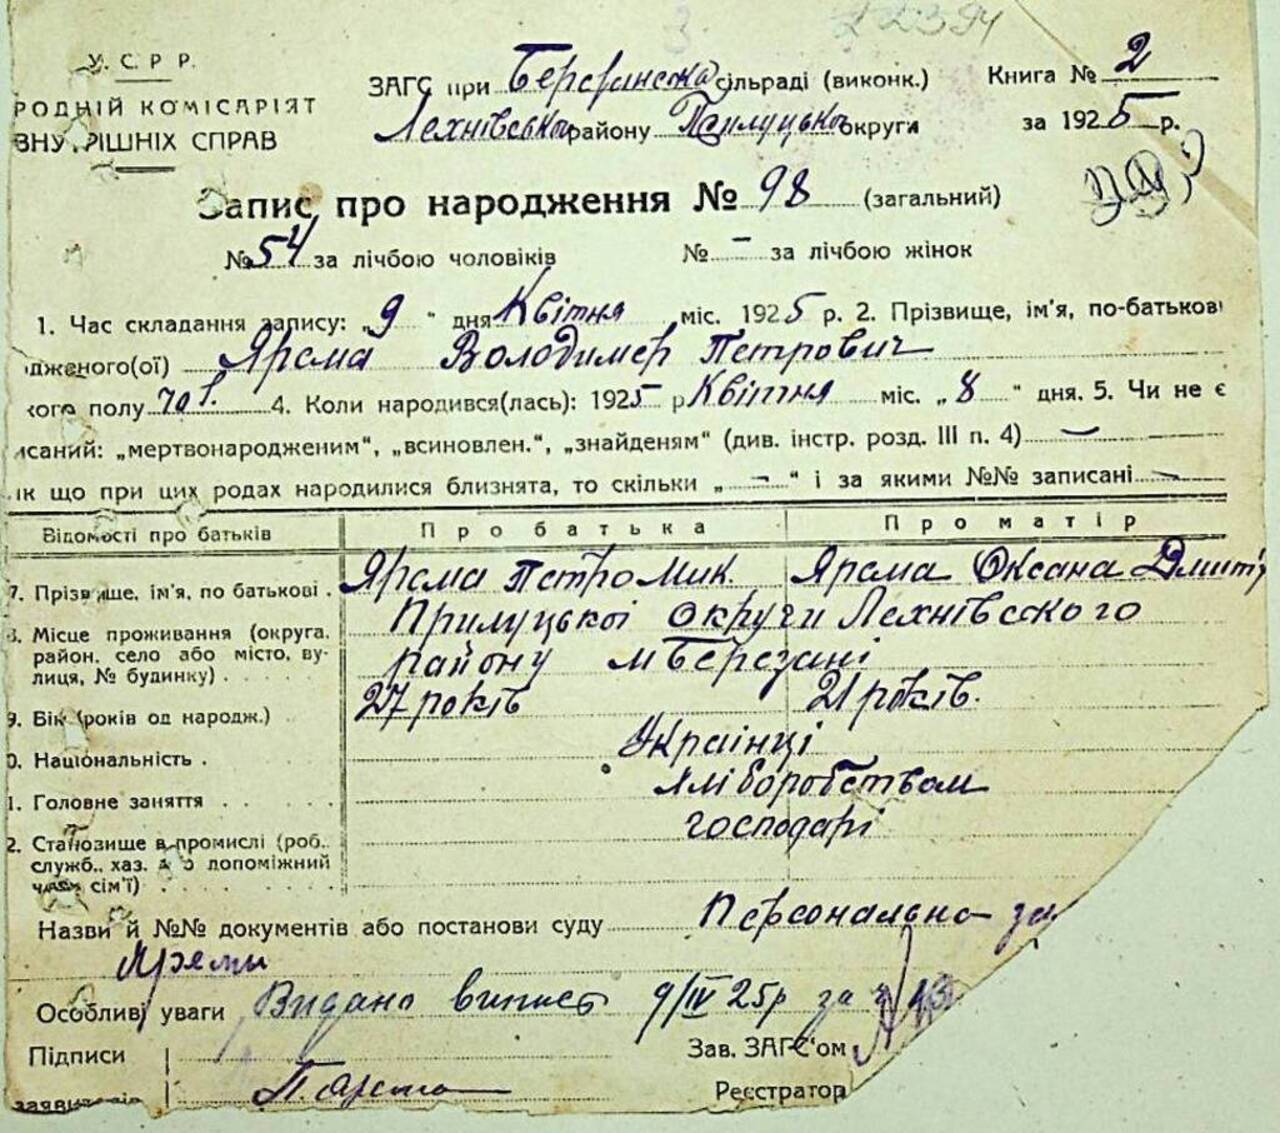 У. С. Р. Р.
РОДНІЙ КОМІСАРІЯТ
ВНУТРІШНІХ СПРАВ
ЗАГС при Березанська сільраді (виконк.)
Лехнівського району Прилуцької округи
Книга № 2
за 1925 р.
Запис про народження № 98 (загальний)
№ 54 за лічбою чоловіків № - за лічбою жінок
1. Час складання запису: „9“ дня Квітня міс. 1925 р. 2. Прізвище, ім'я, по-батькові
дженого(ої) Ярема Володимер Петрович
кого полу чол. 4. Коли народився(лась): 1925 р Квітня міс. „8“ дня. 5. Чи не є
исаний: „мертвонародженим“, „всиновлен.“, „знайденям“ (див. інстр. розд. III п. 4) —
як що при цих родах народилися близнята, то скільки „-“ і за якими №№ записані —
Відомості про батьків Про батька Про матір
7. Прізвище, ім'я, по батькові . Ярема Петро Мик. Ярема Оксана Дмитр
8. Місце проживання (округа, Прилуцької округи Лехнівського
район, село або місто, ву- району м Березані
лиця, № будинку) . . . .
9. Вік (років од народж.) 27 років 21 років.
0. Національність . Українці
1. Головне заняття . . . . . Хліборобством
2. Становище в промислі (роб., господарі
служб., хаз. або допоміжний
член сім'ї) . . . . . . . .
Назви й №№ документів або постанови суду Персонально за
Яреми
Особливі уваги Видано випись 9/IV 25р за №
Підписи
Зав. ЗАГС'ом
П. Ярема
Реєстратор
заявителів